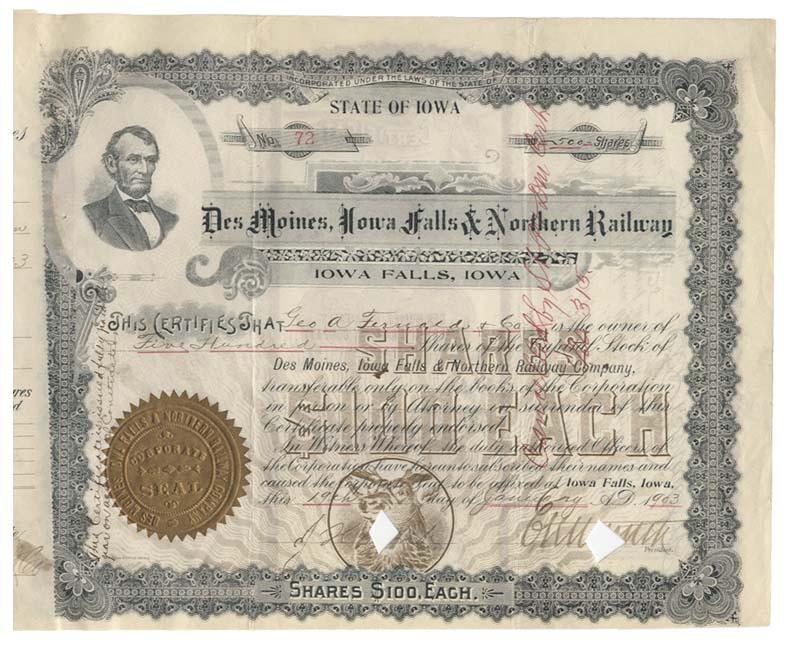 INCORPORATED UNDER THE LAWS OF THE STATE OF
STATE OF IOWA
No. 72
500 Shares
Des Moines, Iowa Falls & Northern Railway
IOWA FALLS, IOWA
THIS CERTIFIES THAT Geo A Fernald & Co is the owner of
Five Hundred Shares of the Capital Stock of
Des Moines, Iowa Falls & Northern Railway Company,
transferable only on the books of the Corporation
in person or by Attorney on surrender of this
Certificate properly endorsed.
In Witness Whereof the duly authorized Officers of
the Corporation have hereunto subscribed their names and
caused the corporate seal to be affixed at Iowa Falls, Iowa,
this 19th day of January A.D. 1903
President.
SHARES
$100 EACH
DES MOINES, IOWA FALLS & NORTHERN RAILWAY COMPANY
CORPORATE
SEAL
This Certificate is issued
SHARES $100, EACH.